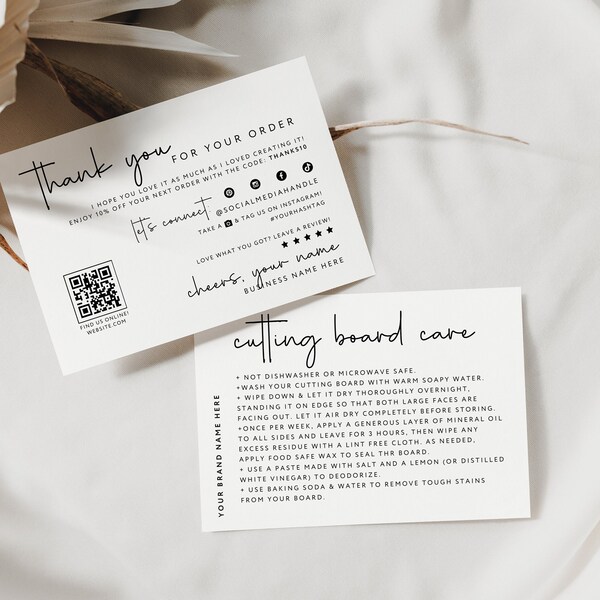 thank you FOR YOUR ORDER
I HOPE YOU LOVE IT AS MUCH AS I LOVED CREATING IT!
ENJOY 10% OFF YOUR NEXT ORDER WITH THE CODE: THANKS10
let's connect
@SOCIALMEDIAHANDLE
TAKE A & TAG US ON INSTAGRAM!
#YOURHASHTAG
LOVE WHAT YOU GOT? LEAVE A REVIEW!
cheers, your name
BUSINESS NAME HERE
FIND US ONLINE!
WEBSITE.COM
cutting board care
+ NOT DISHWASHER OR MICROWAVE SAFE.
+WASH YOUR CUTTING BOARD WITH WARM SOAPY WATER.
+ WIPE DOWN & LET IT DRY THOROUGHLY OVERNIGHT,
STANDING IT ON EDGE SO THAT BOTH LARGE FACES ARE
FACING OUT. LET IT AIR DRY COMPLETELY BEFORE STORING.
+ONCE PER WEEK, APPLY A GENEROUS LAYER OF MINERAL OIL
TO ALL SIDES AND LEAVE FOR 3 HOURS, THEN WIPE ANY
EXCESS RESIDUE WITH A LINT FREE CLOTH. AS NEEDED,
APPLY FOOD SAFE WAX TO SEAL THR BOARD.
+ USE A PASTE MADE WITH SALT AND A LEMON (OR DISTILLED
WHITE VINEGAR) TO DEODORIZE.
+ USE BAKING SODA & WATER TO REMOVE TOUGH STAINS
FROM YOUR BOARD.
YOUR BRAND NAME HERE